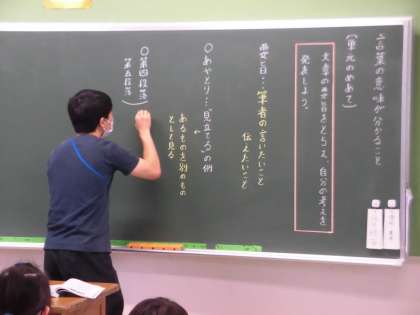 言葉の意味が分かること
【単元のめあて】
文章の要旨をとらえ、自分の考えを
発表しよう。
要旨…筆者の言いたいこと
伝えたいこと
○あやとり…「見立てる」の例
あるものを別のもの
として見る
○第四段落
第五段落